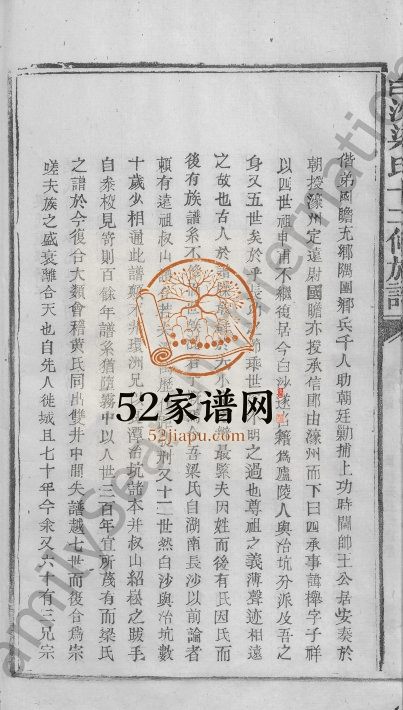 偕弟國瞻充鄉隅團鄉兵千人助朝廷勦捕上功時閫帥王公居安奏於
朝授濠州定遠尉國瞻亦授承信郎由濠州而下曰四承事諱
字子祥
以四世祖申甫不繼復居今白沙遂占籍爲廬陵人與冶坑分派及吾之
身又五世矣於乎長
乖世
不明之過也尊祖之義薄聲迹相遠
之故也古人於譜
最緊夫因姓而後有氏因氏而
後有族譜系不修
吾梁氏自湖南長沙以前論者
頗有遠祖叔山
又十二世然白沙與冶坑數
十歲少相通此譜
環洲兄
潭冶坑譜本并叔山紹崧之䟦手
自黍校見寄則百餘年譜系猶墮霧中以人世三百年宜所蔑有而梁氏
之譜於今復合大類會稽黄氏同出雙井中間失譜越七世而復合爲宗
嗟夫族之盛衰離合天也自先人徙城且七十年今余又六十有三兄宗
白沙梁氏十二修族譜
52家谱网
52jiapu.com
FamilySearch International